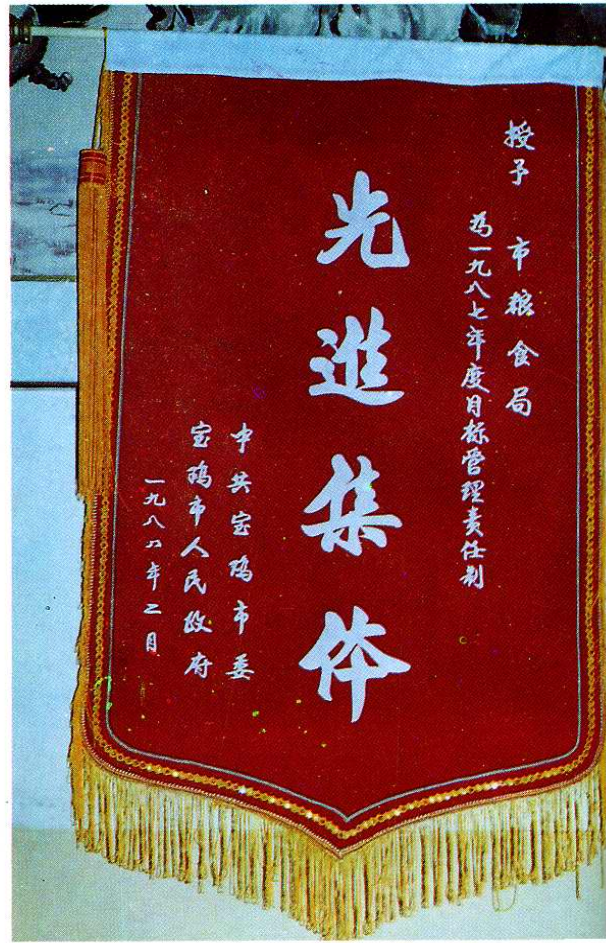 授予 市粮食局
为一九八七年度目标管理责任制
先进集体
中共宝鸡市委
宝鸡市人民政府
一九八八年二月